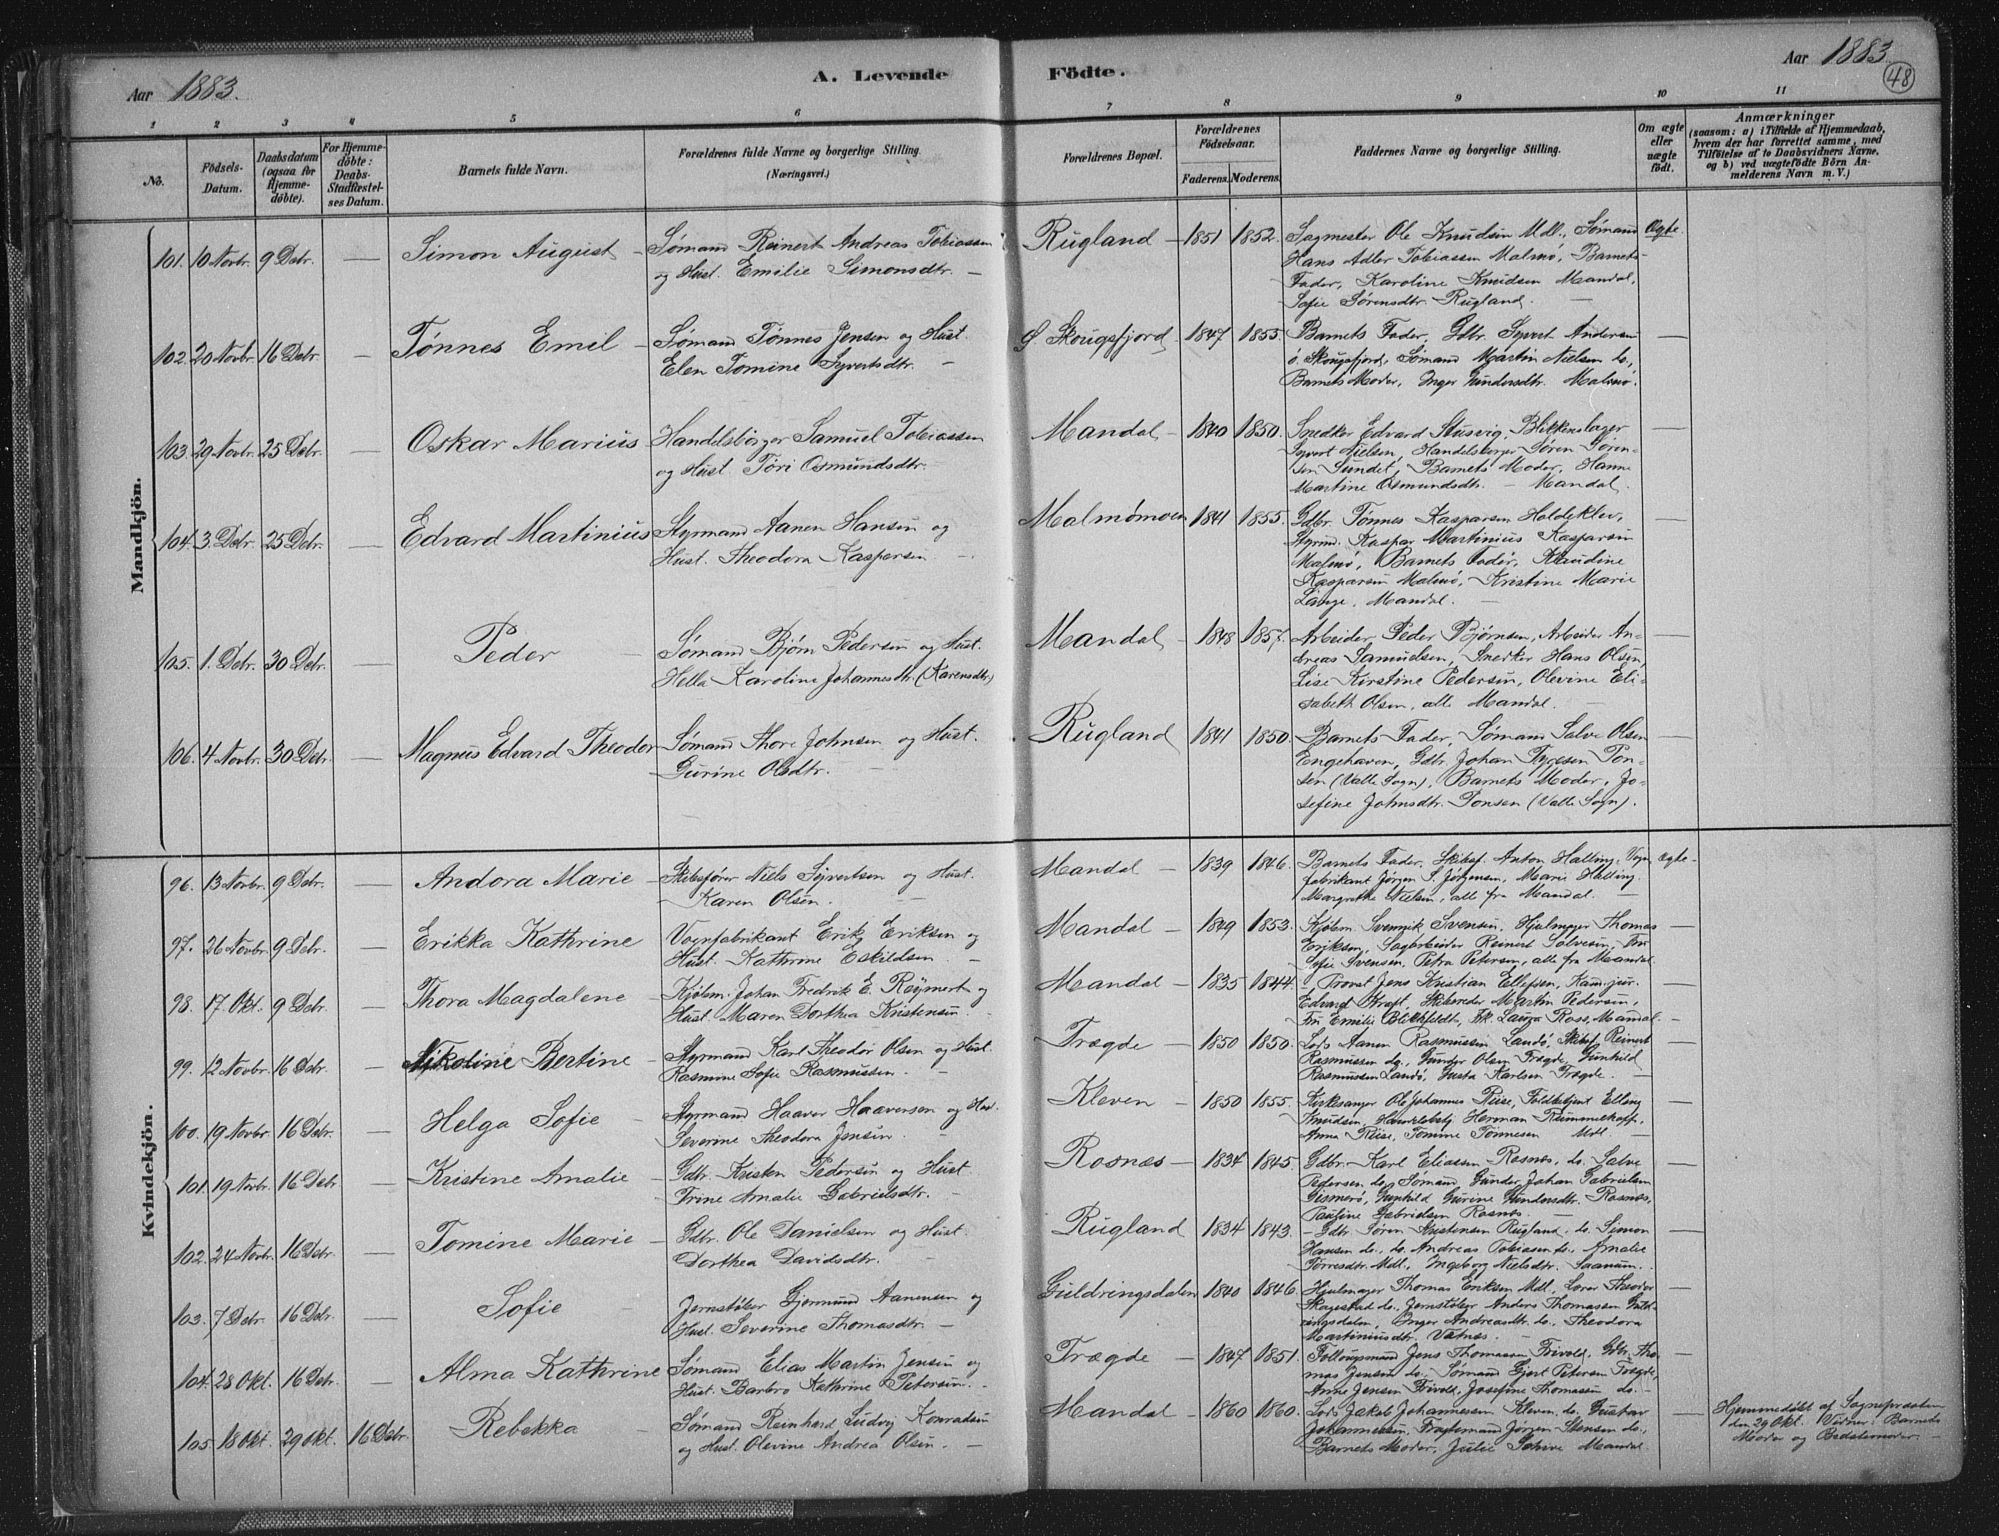 Aar 1883.
A. Levende Födte.
Aar 1883.
48
1 2 3 4 5 6 7 8 9 10 11
No.
Födsels-Datum.
Daabsdatum (ogsaa for Hjemme-döbte).
For Hjemme-döbte: Daabs-Stadfæstel-ses Datum.
Barnets fulde Navn.
Forældrenes fulde Navne og borgerlige Stilling.
(Næringsvei.)
Forældrenes Bopæl.
Forældrenes Födselsaar.
Faderens. Moderens.
Faddernes Navne og borgerlige Stilling.
Om ægte eller uægte födt.
Anmærkninger
(saasom: a) i Tilfælde af Hjemmedaab,
hvem der har forrettet samme, med
Tilföielse af to Daabsvidners Navne,
og b) ved uægtefödte Börn An-
melderens Navn m. V.)
Mandkjön.
101. 10 Novbr. 9 Debr. — Simon August — Sømand Reinert Andreas Tobiassen
og Hust. Emilie Simonsdtr. —
Rugland — 1851 1852. Sagmester Ole Knudsen Mdl., Sømand Ægte.
Hans Adler Tobiassen Malmø, Barnets
Fader, Karoline Knudsen Mandal,
Sofie Sørensdtr. Rugland. —
102. 20 Novbr. 16 Debr. — Tønnes Emil — Sømand Tønnes Jensen og Hust.
Elen Tomine Syvertsdtr. —
Ø Skougsfjord 1847 1855. Barnets Fader, Gdbr. Syvert Andersen —
ø. Skougsfjord, Sømand Martin Nielsen do.,
Barnets Moder, Inger Gundersdtr. Malmø.
103. 29 Novbr. 25 Debr. — Oskar Marius Handelsborger Samuel Tobiassen
og Hust. Tøri Osmundsdtr. —
Mandal — 1840 1850. Snedker Edvard Stusvig, Blikkenslager —
Syvert Nielsen, Handelsborger Søren Søren-
sen Sundet, Barnets Moder, Hanne
Martine Osmundsdtr. — Mandal.
104. 3. Debr. 25 Debr. — Edvard Martinius Styrmand Aanen Hansen og
Hust. Theodora Kaspersen —
Malmømoen 1841 1855. Gdbr. Tønnes Kaspersen Holdeklev, —
Styrmd. Kaspar Martinius Kaspersen
Malmø, Barnets Fader, Klaudine
Kaspersen Malmø, Kristine Marie
Lange, Mandal. —
105. 1. Debr. 30 Debr. — Peder — Sømand Bjørn Pedersen og Hust.
Hella Karoline Johannesdtr. (Karensdtr)
Mandal — 1848 1857. Arbeider Peder Bjørnsen, Arbeider An- —
dreas Samuelsen, Snedker Hans Olsen,
Lise Kirstine Pedersen, Olevine Eli-
sabeth Olsen, alle Mandal. —
106. 4 Novbr. 30 Debr. — Magnus Edvard Theodor Sømand Thore Johnsen og Hust.
Gurine Olsdtr. —
Rugland 1841 1850. Barnets Fader, Sømand Salve Olsen —
Engehaven, Gdbr. Johan
(Valle Sogn), Barnets Moder, Jo-
sefine Johnsdtr. (Valle Sogn).
Kvindekjön.
96. 13 Novbr. 9 Debr. — Andora Marie — Skibsfører Niels Syvertsen og Hust.
Karen Olsen. —
Mandal — 1839 1846. Barnets Fader, Skibsf. Anton Halling, Vogn- ægte
fabrikant Jørgen S. Jørgensen, Marie Halling,
Margrethe Nielsen, alle fra Mandal. —
97. 26 Novbr. 9 Debr. — Erikka Kathrine Vognfabrikant Erik Eriksen og
Hust. Kathrine Eskildsen. —
Mandal — 1849 1853. Kjøbm. Svennik Svensen, Hjulmager Thomas —
Eriksen, Sagarbeider Reinert Salvesen, Fru
Sofie Svensen, Petra Petersen, alle fra Mandal.
98. 17 Okt. 9 Debr. — Thora Magdalene — Kjøbm. Johan Fredrik E. Røymert og
Hust. Maren Dorthea Kristensen. —
Mandal — 1835 1844. Provst Jens Kristian Ellefsen, Kam.jur. —
Edvard Kraft, Skibsreder Martin Pedersen,
Fru Emilie Blikfeldt, Frk. Laura Ross, Mandal.
99. 12 Novbr. 16 Debr. — Nikoline Bertine — Styrmand Karl Theodor Olsen og Hust.
Rasmine Sofie Rasmussen. —
Trægde — 1850 1850. Lods Aanen Rasmussen Landø, Skibsf. Reinert —
Rasmussen do., Gunder Olsen Trægde, Gunhild
Rasmussen Landø, Gusta Karlsen Trægde. —
100. 19 Novbr. 16 Debr. — Helga Sofie — Styrmand Haaver Haaversen og Hust.
Severine Theodora Jensen. —
Kleven — 1850 1855. Kirkesanger Ole Johannes Riise, Toldbetjent Elling —
Knudsen, Handelsbetj. Herman
Anna Riise, Tomine Tønnesen Mdl. —
101. 19 Novbr. 16 Debr. — Kristine Amalie — Gdbr. Kristen Pedersen og Hust.
Trine Amalie Gabrielsdtr. —
Rosnæs — 1834 1845. Gdbr. Karl Eliassen Rosnæs, do. Salve —
Pedersen do., Sømand Gunder Johan Gabrielsen
Gismerø, Gunhild Gurine Gundersdtr. Rosnæs,
Pauline Gabrielsen Rosnæs. —
102. 24 Novbr. 16 Debr. — Tomine Marie — Gdbr. Ole Danielsen og Hust.
Dorthea Davidsdtr. —
Rugland 1834 1843. — Gdbr. Søren Kristensen Rugland, do. Simon —
Hansen do., do. Andreas Tobiassen do., Amalie
Tørresdtr. Mdl., Ingeborg Nielsdtr. Saanum.
103. 7 Debr. 16 Debr. — Sofie Jernstøber Gjermund Aanensen og
Hust. Severine Thomasdtr. —
Guldringsdalen 1840 1846. Hjulmager Thomas Eriksen Mdl., Theodor —
Skagestad do., Jernstøber Anders Thomassen Guld-
ringsdalen, Inger Andreasdtr. do., Theodora
Martiniusdtr. Vatnæs. —
104. 28 Okt. 16 Debr. — Alma Kathrine Sømand Elias Martin Jensen og
Hust. Barbro Kathrine Petersen. —
Trægde — 1847 1851. Jens Thomassen Frivold, Gdbr. Tho- —
mas Jensen do., Sømand Gjert Petersen Trægde,
Anne Jensen Frivold, Josefine Thomassen do. —
105. 18 Okt. 29 Okt. 16 Debr. Rebekka — Sømand Reinhard Ludvig Konradsen
og Hust. Olevine Andrea Olsen. —
Mandal — 1860 1860. Lods Jakob Johannessen Kleven, do. Gustav —
Johannessen, Fragtemand Jørgen Stensen do.,
Barnets Moder, Julie Mandal
Hjemmedøbt af Sognepræsten
den 29 Okt. Vidner: Barnets
Moder og Bedstemoder. —